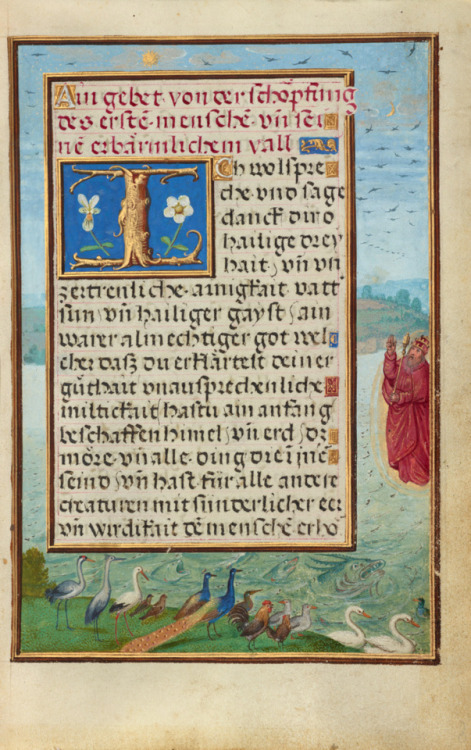 Ain gebet von der schöpfung
des erstē menschē vn̄ sei
nē erbärmlichem vall
ICh wolspre
che vnd sage
danck dir o
hailige drey
hait / vn̄ vn
zertrenliche ainigkait vatt
sun / vn̄ hailiger gayst / ain
warer almechtiger got wel
cher dasz du erklärtest deiner
güthait vnausprechenliche
miltickait hastu am anfang
beschaffen himel / vn̄ erd / dz
möre vn̄ alle ding dreī īne
seind / vn̄ hast für alle andere
creaturen mit sünderlicher eer
vn̄ wirdikait dē menschē erhö